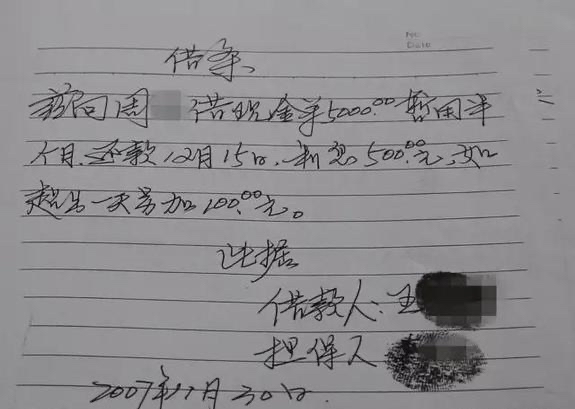 No
Date
借条
兹向周 借现金¥5000.00 暂用半
个月.还款12月15日,利息500.00元,如
超出一天另加100.00元。
此据
借款人:王
担保人
2007年11月30日